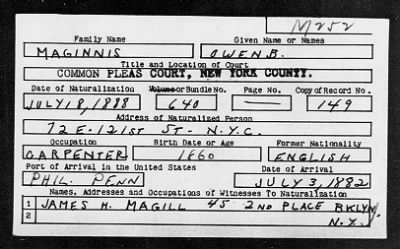 M252
Family Name Given Name or Names
MAGINNIS OWEN B.
Title and Location of Court
COMMON PLEAS COURT, NEW YORK COUNTY.
Date of Naturalization Volume or Bundle No. Page No. Copy of Record No.
JULY 18, 1888 640 149
Address of Naturalized Person
72 E. 121ST ST- N.Y.C.
Occupation Birth Date or Age Former Nationality
CARPENTER 1860 ENGLISH
Port of Arrival in the United States Date of Arrival
PHIL. PENN JULY 3, 1882
Names, Addresses and Occupations of Witnesses To Naturalization
1 JAMES H. MAGILL 45 2ND PLACE BKLYN,
2 N.Y.